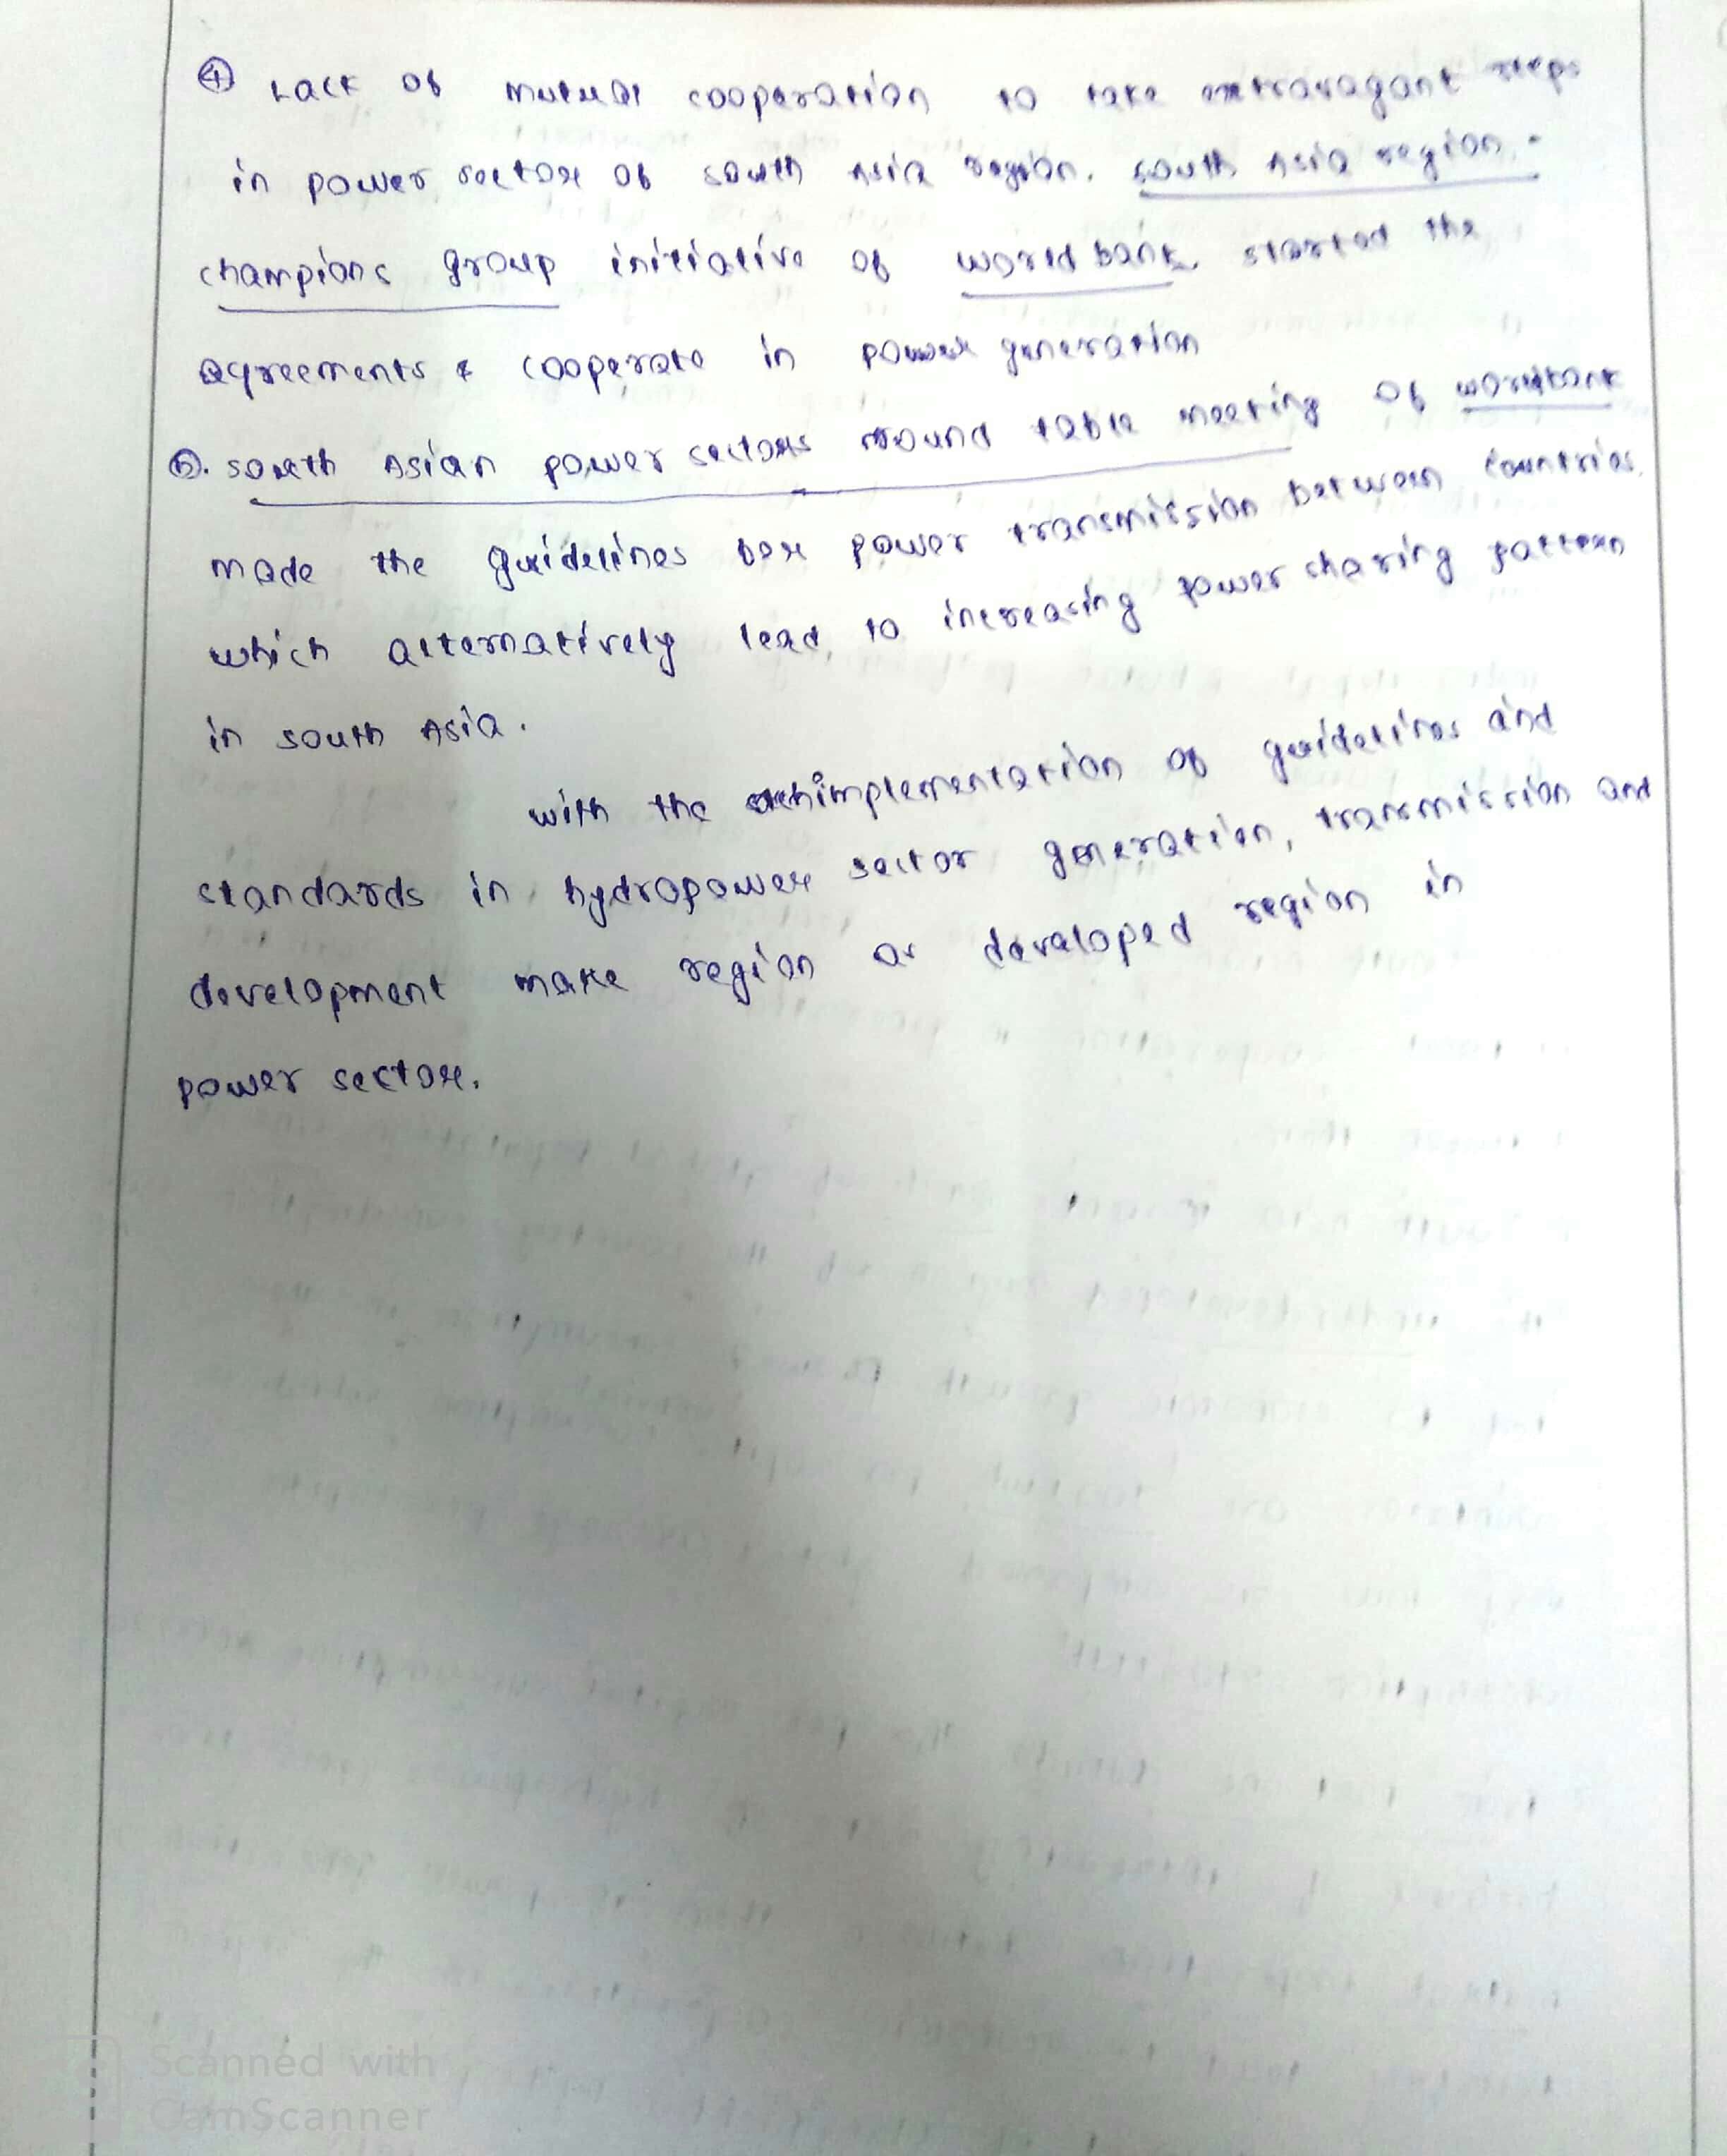 ④ Lack of mutual cooperation to take extravagant steps
in power sector of south Asia region. south Asia region
champions group initiative of world bank started the
agreements & cooperate in power generation
⑤. South Asian power sectors round table meeting of worldbank
made the guidelines for power transmission between countries.
which alternatively lead to increasing power sharing pattern
in south Asia.
with the implementation of guidelines and
standards in hydropower sector generation, transmission and
development make region as developed region in
power sector.
Scanned with
CamScanner